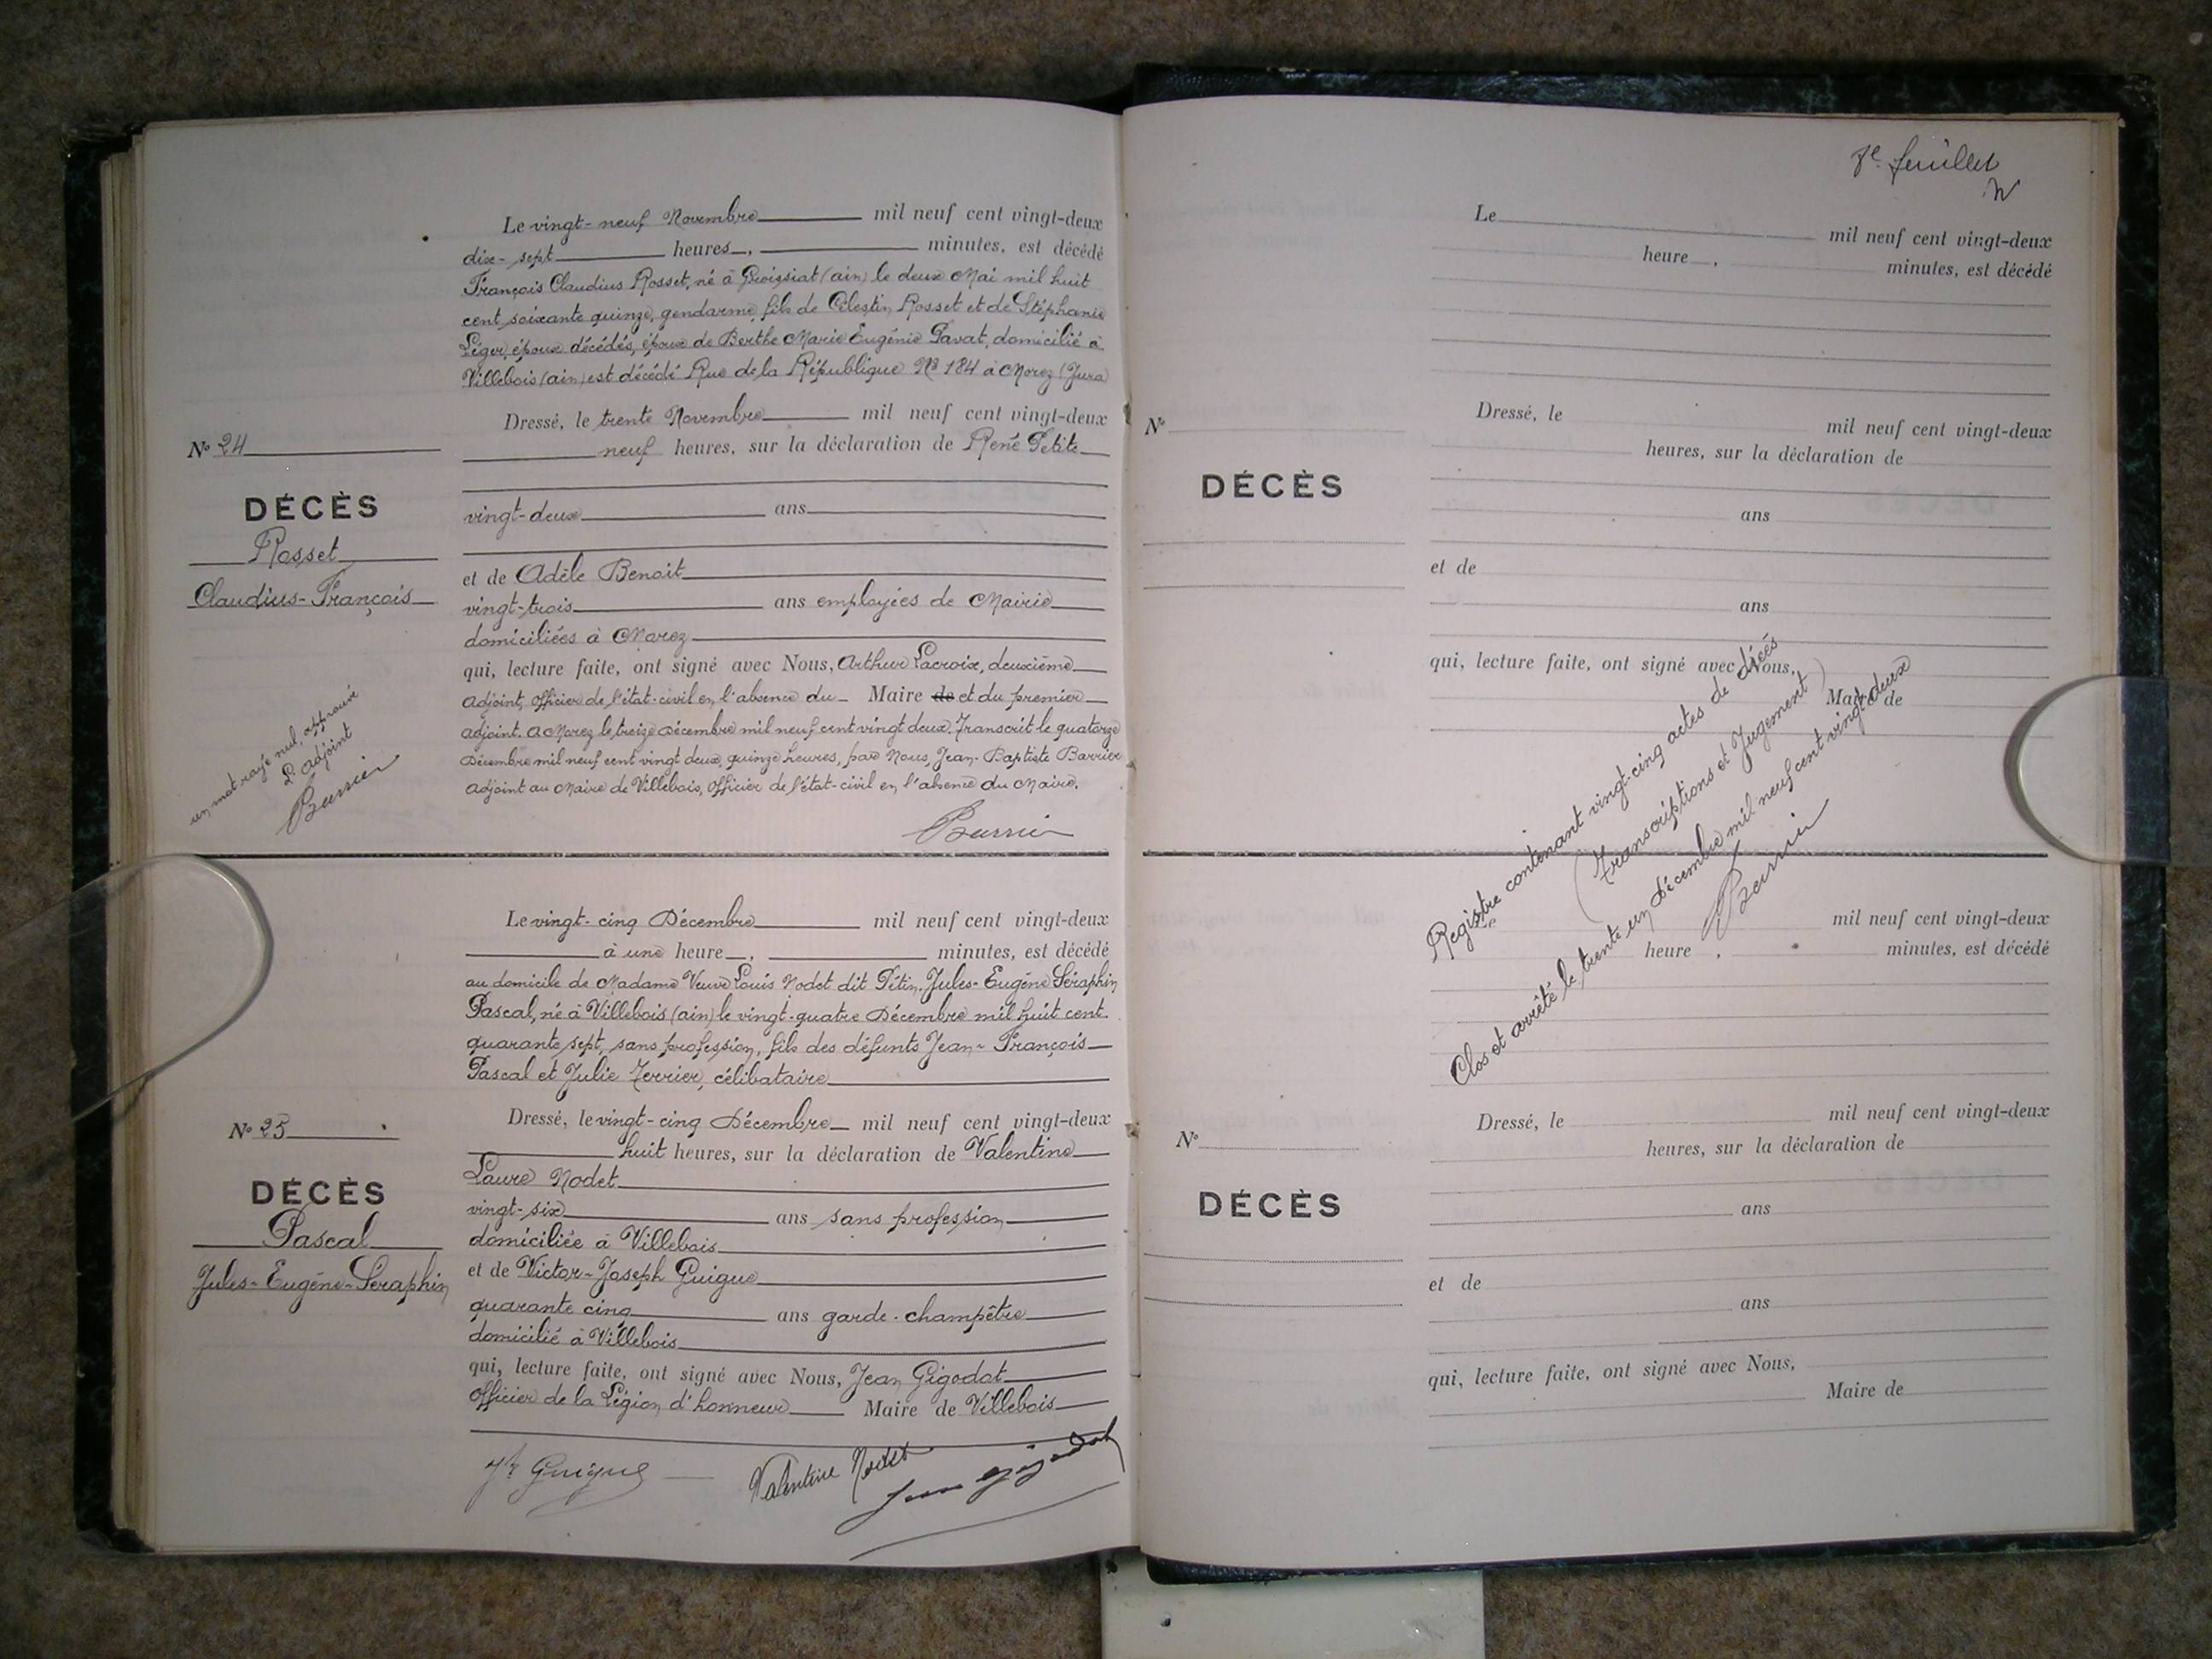 Le vingt-neuf Novembre mil neuf cent vingt-deux
dix-sept heures, minutes, est décédé
François Claudius Rosset, né à Groissiat (ain) le deux Mai mil huit
cent soixante quinze, gendarme, fils de Célestin Rosset et de Stéphanie
Léger, époux décédés, époux de Berthe Marie Eugénie Pavat, domicilié à
Villebois (ain) est décédé Rue de la République No 184 à Morez (Jura)
Dressé, le trente Novembre mil neuf cent vingt-deux
neuf heures, sur la déclaration de René Petite
vingt-deux ans
et de Adèle Benoit
vingt-trois ans employées de Mairie
domiciliées à Morez
qui, lecture faite, ont signé avec Nous, Arthur Lacroix, deuxième
adjoint, officier de l'état-civil en l'absence du Maire de et du premier
adjoint. A Morez le treize Décembre mil neuf cent vingt deux. Transcrit le quatorze
Décembre mil neuf cent vingt deux, quinze heures, par Nous, Jean-Baptiste Barrier
adjoint au Maire de Villebois, officier de l'état-civil en l'absence du Maire.
Barrier
No 24
DÉCÈS
Rosset
Claudius-François
un mot rayé nul, approuvé
L'adjoint
Barrier
Le vingt-cinq Décembre mil neuf cent vingt-deux
à une heure, minutes, est décédé
au domicile de Madame Veuve Louis Nodet dit Pétin, Jules-Eugène Séraphin
Pascal, né à Villebois (ain) le vingt-quatre Décembre mil huit cent
quarante sept, sans profession, fils des défunts Jean-François
Pascal et Julie Terrier, célibataire
Dressé, le vingt-cinq Décembre mil neuf cent vingt-deux
huit heures, sur la déclaration de Valentine
Laure Nodet
vingt-six ans sans profession
domiciliée à Villebois
et de Victor-Joseph Guigue
quarante cinq ans garde-champêtre
domicilié à Villebois
qui, lecture faite, ont signé avec Nous, Jean Gigodot
officier de la Légion d'honneur Maire de Villebois
Guigue
Valentine Nodet
Jean Gigodot
No 25
DÉCÈS
Pascal
Jules-Eugène-Seraphin
feuillet
Le mil neuf cent vingt-deux
heure, minutes, est décédé
Dressé, le mil neuf cent vingt-deux
heures, sur la déclaration de
ans
et de
ans
qui, lecture faite, ont signé avec Nous,
Maire de
No
DÉCÈS
Registre contenant vingt-cinq actes de décés
(transcriptions et Jugement)
Clos et arrêté le trente un Décembre mil neuf cent vingt deux
Barrier
Le mil neuf cent vingt-deux
heure, minutes, est décédé
Dressé, le mil neuf cent vingt-deux
heures, sur la déclaration de
ans
et de
ans
qui, lecture faite, ont signé avec Nous,
Maire de
No
DÉCÈS